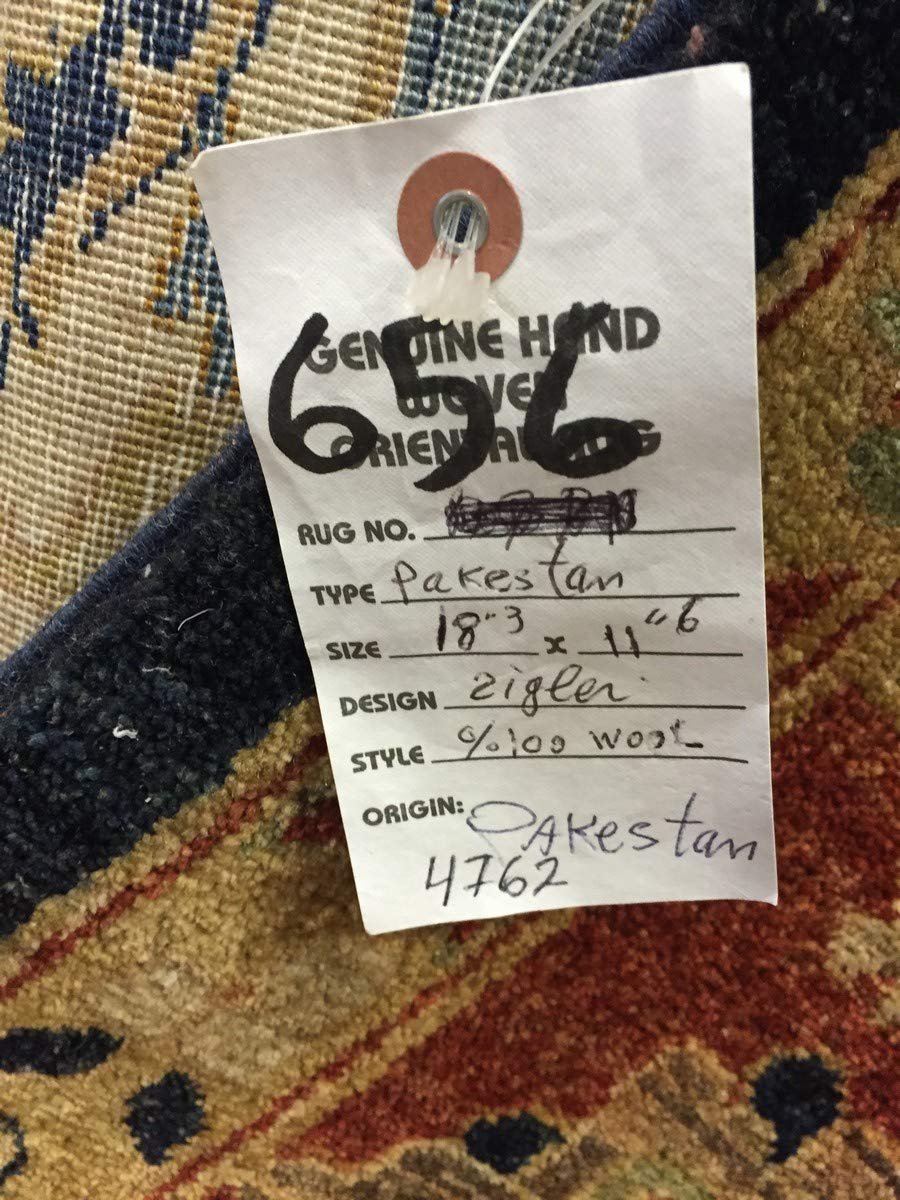 656
GENUINE HAND
WOVEN
ORIENTAL RUG
RUG NO.
TYPE Pakestan
SIZE 18"3 x 11"6
DESIGN zigler
STYLE %100 wool
ORIGIN: PAKestan
4762